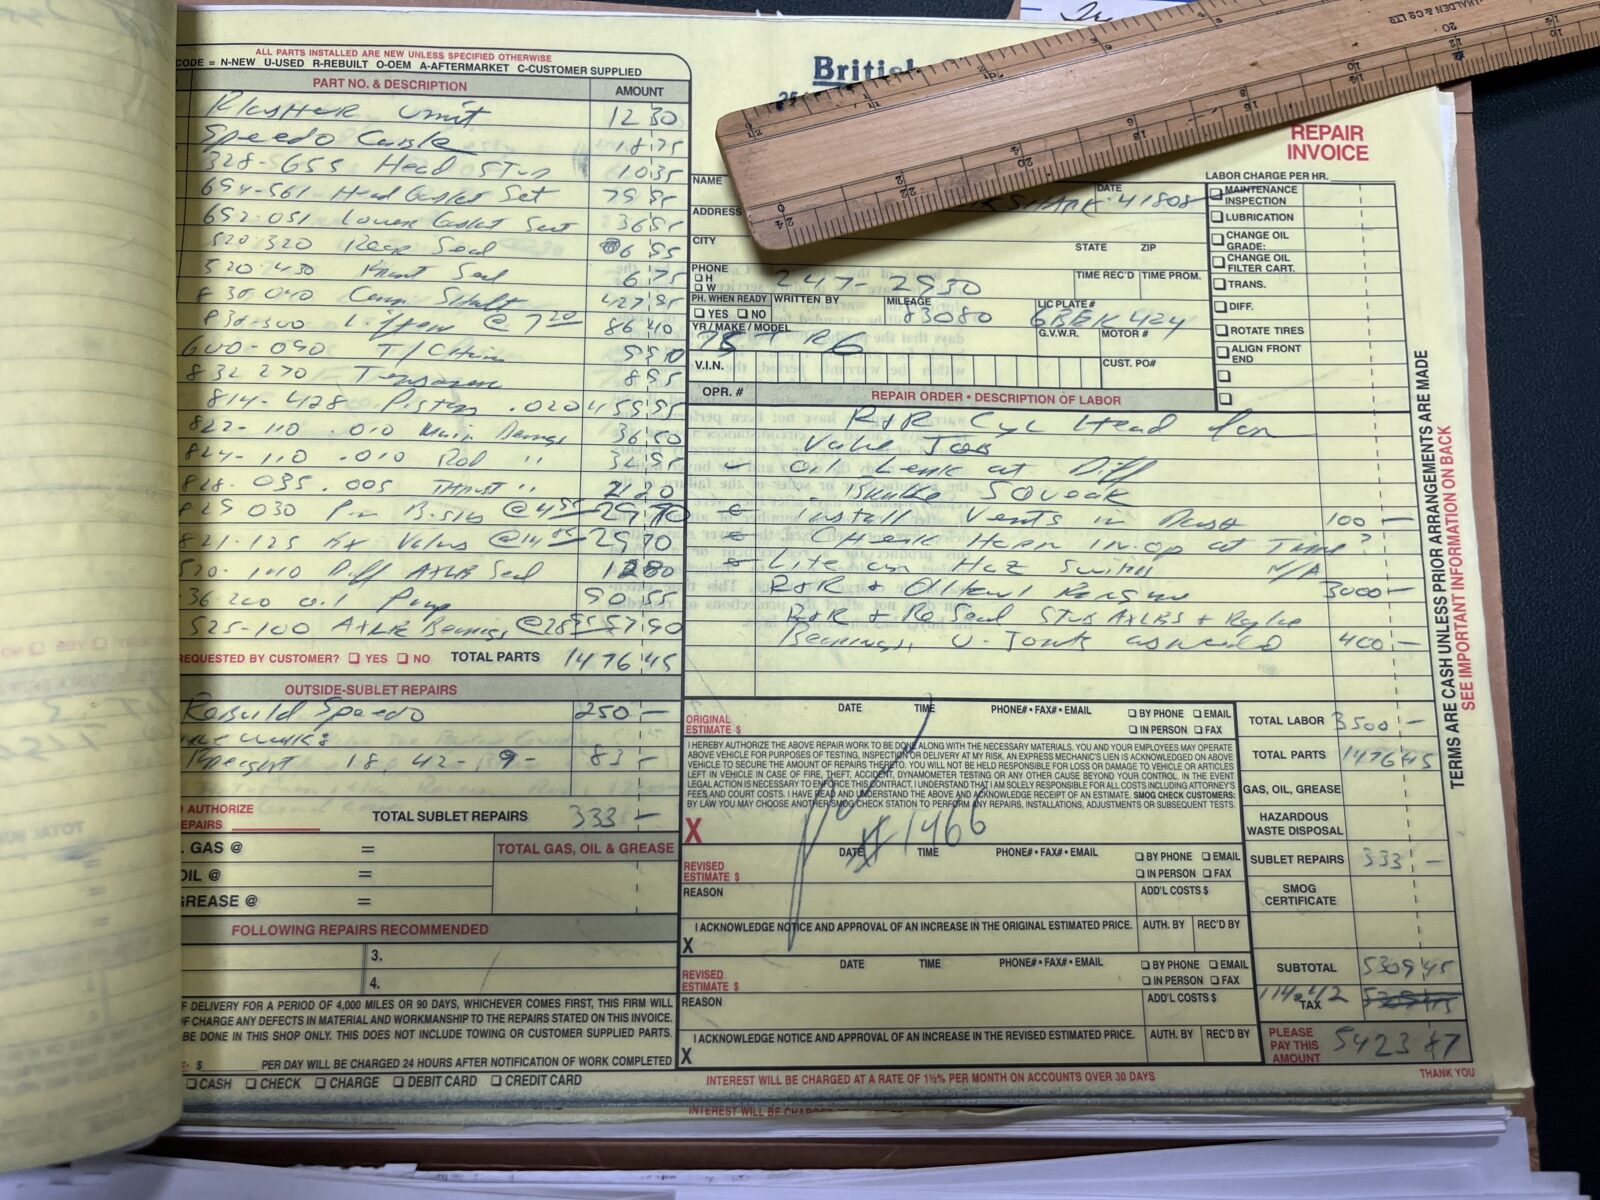 ALL PARTS INSTALLED ARE NEW UNLESS SPECIFIED OTHERWISE
CODE = N-NEW U-USED R-REBUILT O-OEM A-AFTERMARKET C-CUSTOMER SUPPLIED
PART NO. & DESCRIPTION AMOUNT
Unit 12 30
Speedo Cable 18 75
328-655 Head 10 35
694-561 Head Gasket Set
692-051 Lower Gasket Set 36 95
520-320 Rear Seal
520-430 Front Seal 6 75
830-040 Cam Shaft 427 95
@ 7 20 86 40
600-090 T/Chain
832 270 8 95
814-428 Piston .020 459 95
822-110 .010 Main Bearings
824-110 .010 Rod "
828-035 .005 Thrust "
829 030 Pin
821-125 Ex Valves
520-140 Diff Axle Seal
36-200 Oil Pump 90 55
525-100 Axle Bearings 57 90
REQUESTED BY CUSTOMER? YES NO TOTAL PARTS 1476 45
OUTSIDE-SUBLET REPAIRS
Rebuild Speedo 250 —
18, 42- 9- 83 —
AUTHORIZE
REPAIRS
TOTAL SUBLET REPAIRS 333 —
GAS @ = TOTAL GAS, OIL & GREASE
OIL @ =
GREASE @ =
FOLLOWING REPAIRS RECOMMENDED
3.
4.
F DELIVERY FOR A PERIOD OF 4,000 MILES OR 90 DAYS, WHICHEVER COMES FIRST, THIS FIRM WILL
F CHARGE ANY DEFECTS IN MATERIAL AND WORKMANSHIP TO THE REPAIRS STATED ON THIS INVOICE.
BE DONE IN THIS SHOP ONLY. THIS DOES NOT INCLUDE TOWING OR CUSTOMER SUPPLIED PARTS.
$ PER DAY WILL BE CHARGED 24 HOURS AFTER NOTIFICATION OF WORK COMPLETED
CASH CHECK CHARGE DEBIT CARD CREDIT CARD
British
REPAIR
INVOICE
LABOR CHARGE PER HR.
NAME DATE
41808
ADDRESS
CITY STATE ZIP
PHONE H W 247-2930 TIME REC'D TIME PROM.
PH. WHEN READY WRITTEN BY MILEAGE LIC PLATE #
YES NO 83080 6BEK424
YR / MAKE / MODEL G.V.W.R. MOTOR #
75 T R6
V.I.N. CUST. PO#
MAINTENANCE INSPECTION
LUBRICATION
CHANGE OIL GRADE:
CHANGE OIL FILTER CART.
TRANS.
DIFF.
ROTATE TIRES
ALIGN FRONT END
OPR. # REPAIR ORDER • DESCRIPTION OF LABOR
R+R Cyl Head for
Valve Job
Oil Leak at Diff
Squeak
Install Vents in Dash 100 —
Check Horn in-op at Time?
Lite on Haz Switch N/A
R+R + 3000 —
R+R + ReSeal Stub Axles +
Bearings, U-Joints as needed 400 —
ORIGINAL ESTIMATE $ DATE TIME PHONE# • FAX# • EMAIL BY PHONE EMAIL IN PERSON FAX
I HEREBY AUTHORIZE THE ABOVE REPAIR WORK TO BE DONE ALONG WITH THE NECESSARY MATERIALS. YOU AND YOUR EMPLOYEES MAY OPERATE
ABOVE VEHICLE FOR PURPOSES OF TESTING, INSPECTION OR DELIVERY AT MY RISK. AN EXPRESS MECHANIC'S LIEN IS ACKNOWLEDGED ON ABOVE
VEHICLE TO SECURE THE AMOUNT OF REPAIRS THERETO. YOU WILL NOT BE HELD RESPONSIBLE FOR LOSS OR DAMAGE TO VEHICLE OR ARTICLES
LEFT IN VEHICLE IN CASE OF FIRE, THEFT, ACCIDENT, DYNAMOMETER TESTING OR ANY OTHER CAUSE BEYOND YOUR CONTROL. IN THE EVENT
LEGAL ACTION IS NECESSARY TO ENFORCE THIS CONTRACT, I UNDERSTAND THAT I AM SOLELY RESPONSIBLE FOR ALL COSTS INCLUDING ATTORNEY'S
FEES AND COURT COSTS. I HAVE READ AND UNDERSTAND THE ABOVE AND ACKNOWLEDGE RECEIPT OF AN ESTIMATE. SMOG CHECK CUSTOMERS:
BY LAW YOU MAY CHOOSE ANOTHER SMOG CHECK STATION TO PERFORM ANY REPAIRS, INSTALLATIONS, ADJUSTMENTS OR SUBSEQUENT TESTS.
X
# 1466
REVISED ESTIMATE $ DATE TIME PHONE# • FAX# • EMAIL BY PHONE EMAIL IN PERSON FAX
REASON ADD'L COSTS $
X I ACKNOWLEDGE NOTICE AND APPROVAL OF AN INCREASE IN THE ORIGINAL ESTIMATED PRICE. AUTH. BY REC'D BY
REVISED ESTIMATE $ DATE TIME PHONE# • FAX# • EMAIL BY PHONE EMAIL IN PERSON FAX
REASON ADD'L COSTS $
X I ACKNOWLEDGE NOTICE AND APPROVAL OF AN INCREASE IN THE REVISED ESTIMATED PRICE. AUTH. BY REC'D BY
INTEREST WILL BE CHARGED AT A RATE OF 1½% PER MONTH ON ACCOUNTS OVER 30 DAYS
TOTAL LABOR 3500 —
TOTAL PARTS 1476 45
GAS, OIL, GREASE
HAZARDOUS WASTE DISPOSAL
SUBLET REPAIRS 333 —
SMOG CERTIFICATE
SUBTOTAL 5309 45
TAX 114.42
PLEASE PAY THIS AMOUNT 5423 87
THANK YOU
TERMS ARE CASH UNLESS PRIOR ARRANGEMENTS ARE MADE
SEE IMPORTANT INFORMATION ON BACK